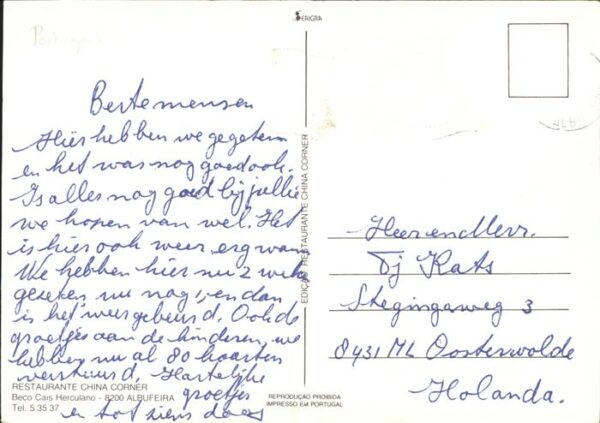 Portugal
SERIGRA
Beste mensen
Hier hebben we gegeten
en het was nog goed ook.
Is alles nog goed bij jullie
we hopen van wel. Het
is hier ook weer erg warm
We hebben hier nu 2 weken
gezeten nu nog 1, en dan
is het weer gebeurd. Ook de
groetjes aan de kinderen, we
hebben nu al 80 kaarten
verstuurd, Hartelijke
groetjes
en tot ziens
RESTAURANTE CHINA CORNER
Beco Cais Herculano - 8200 ALBUFEIRA
Tel. 5 35 37
EDIÇÃO RESTAURANTE CHINA CORNER
REPRODUÇÃO PROIBIDA
IMPRESSO EM PORTUGAL
Heer en Mevr.
Tj Kats
Stegingaweg 3
8431 ML Oosterwolde
Holanda.